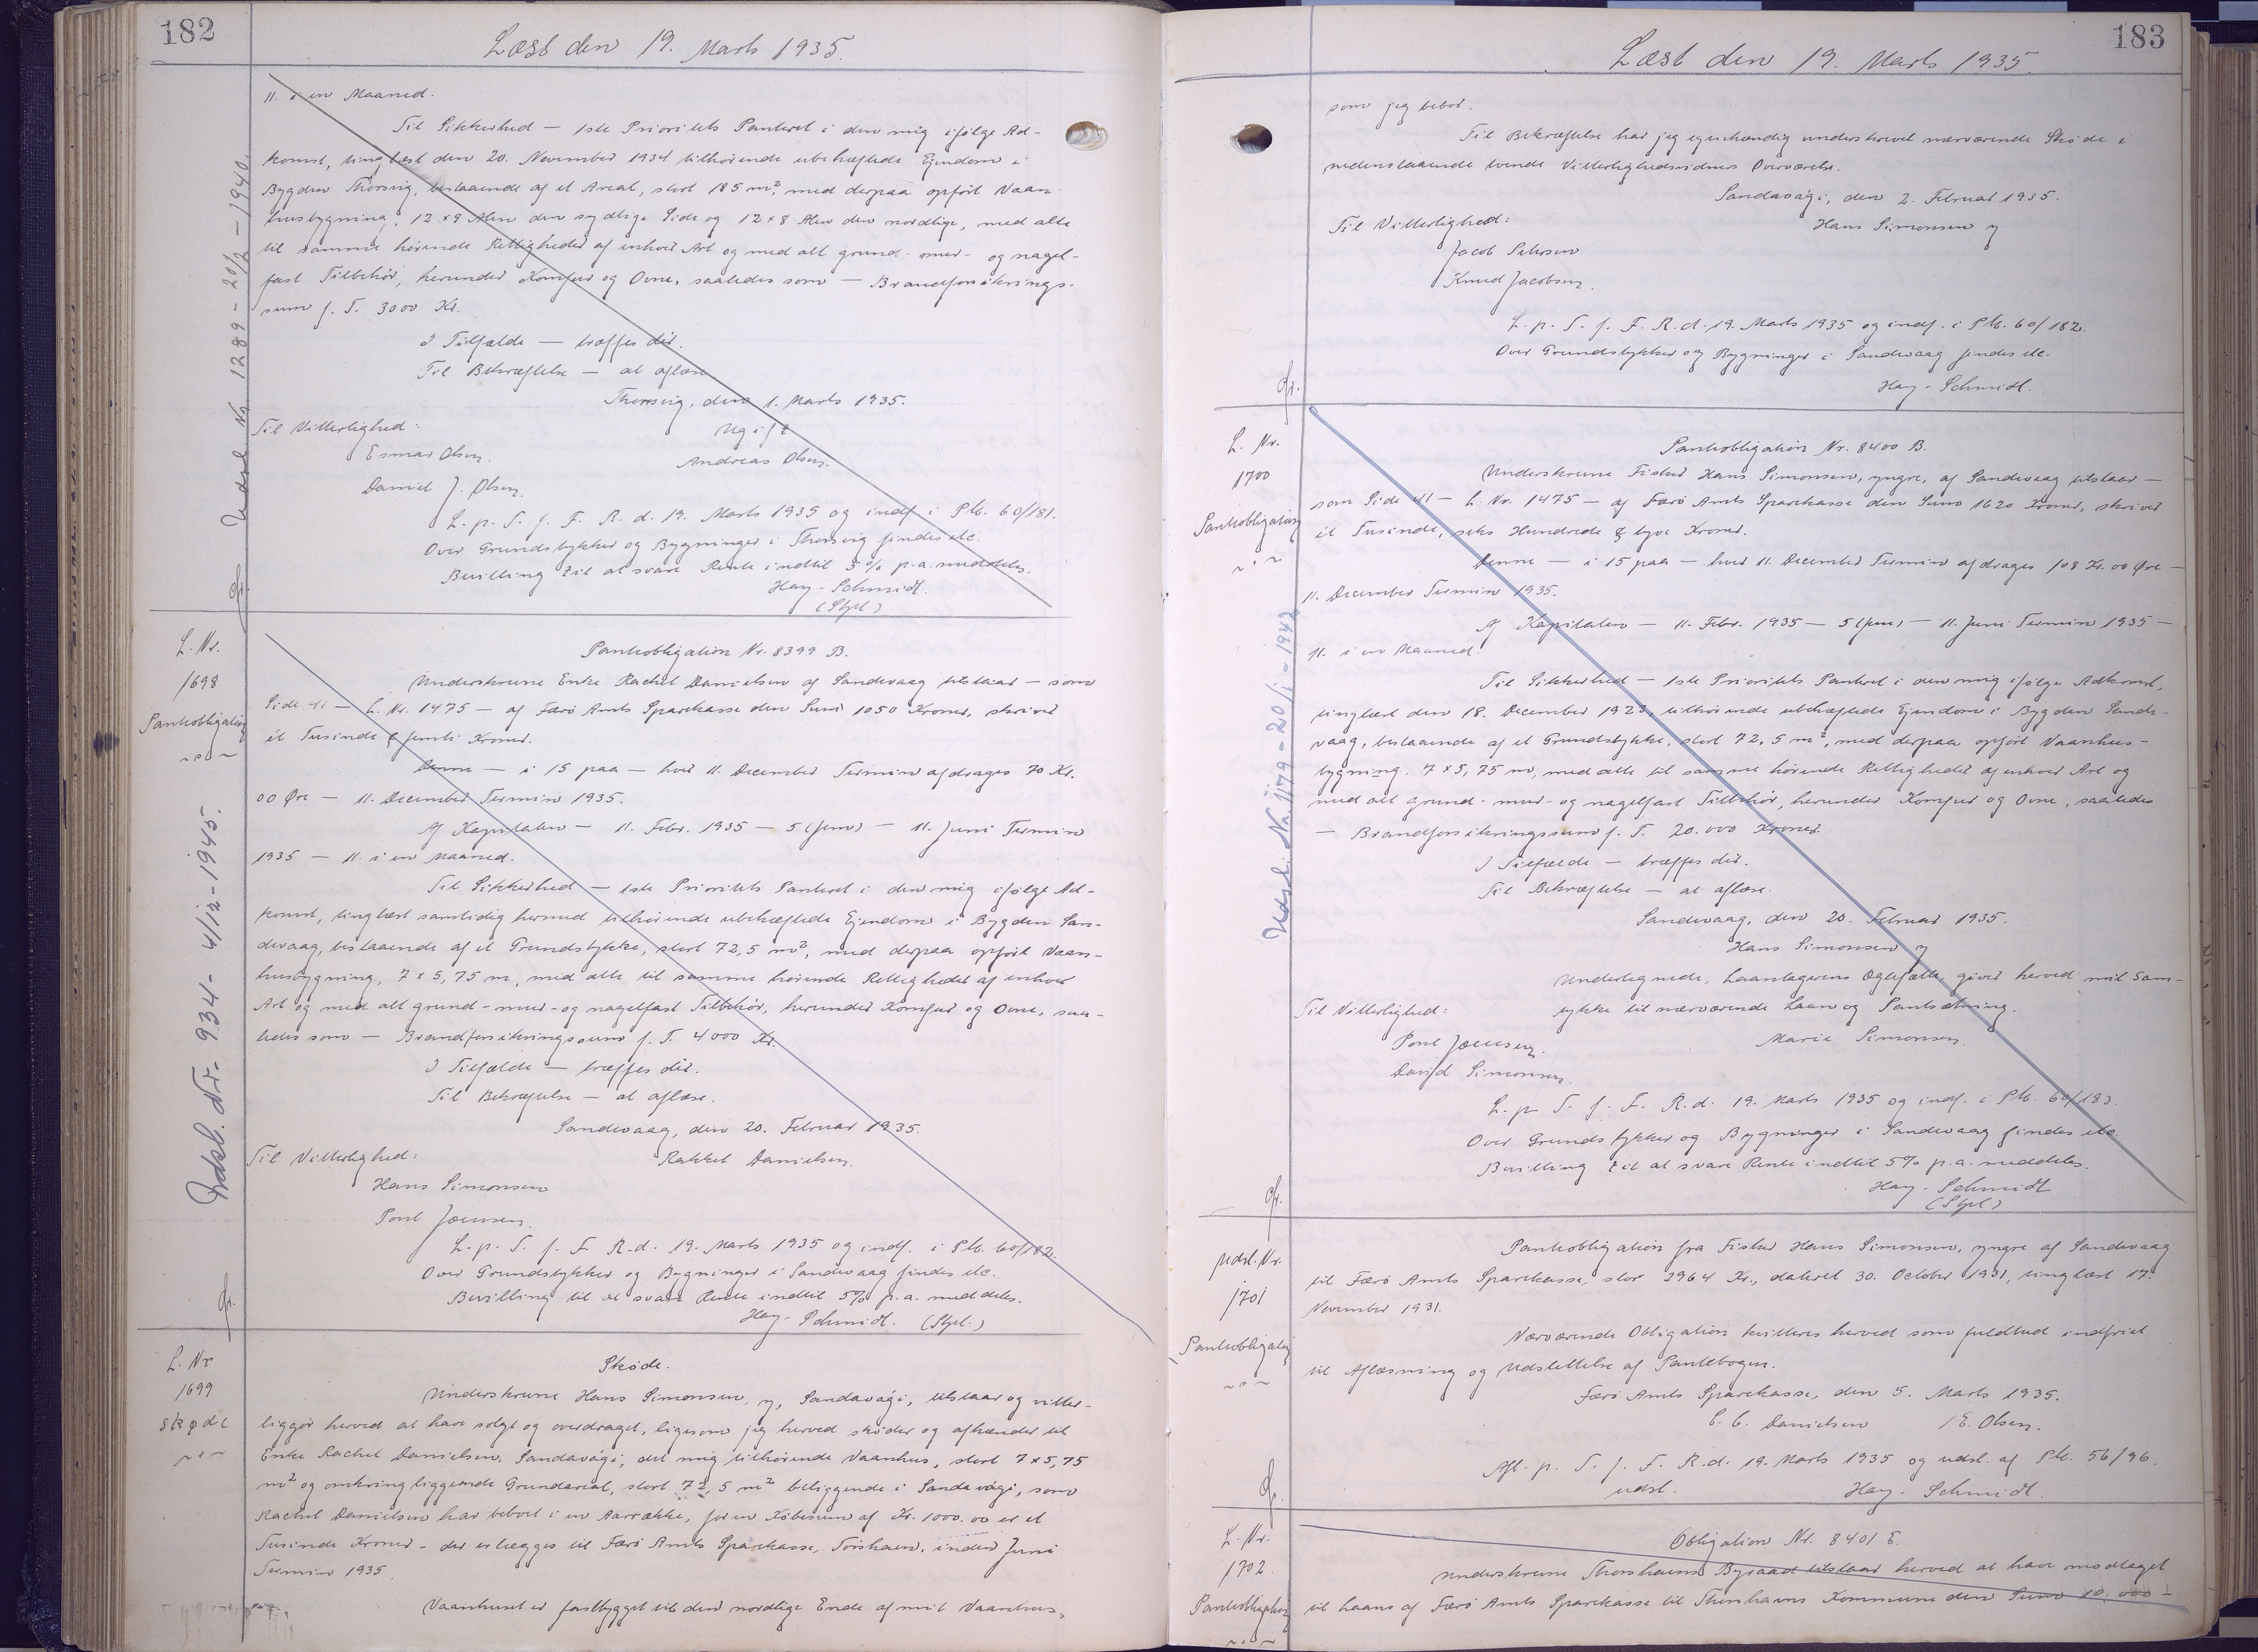 182
Læst den 19. Marts 1935.
11. i en Maaned.
Til Sikkerhed — 1ste Prioritets Panteret i den mig ifølge Ad-
komst, tinglæst den 20. November 1934 tilhørende ubehæftede Ejendom i
Bygden Thorsvig, bestaaende af et Areal, stort 185 m², med derpaa opført Vaan-
husbygning, 12 x 9 Alen den sydlige Side og 12 x 8 Alen den nordlige, med alle
til samme hørende Rettigheder af enhver Art og med alt grund- mur- og nagel-
fast Tilbehør, herunder Komfur og Ovne, saaledes som — Brandforsikrings-
sum p. T. 3000 Kr.
I Tilfælde — træffes dér.
Til Bekræftelse — at aflæse
Thorsvig, den 1. Marts 1935.
Til Vitterlighed:
Ugift
Esmar Olsen.
Andreas Olsen.
Daniel J. Olsen.
L. p. T. f. F. R. d. 19. Marts 1935 og indf. i Ptb. 60/181.
Over Grundstykker og Bygninger i Thorsvig findes etc.
Bevilling til at svare Rente indtil 5% p.a. meddeles.
Hay-Schmidt.
(Stpl.)
Udsl. Nr. 1289 - 20/2 - 1940.
L. Nr.
1698
Pantobligation
Pantobligation Nr. 8399 B.
Underskrevne Enke Rachel Danielsen af Sandevaag tilstaar — som
Side 41 — L. Nr. 1475 — af Færø Amts Sparekasse den Sum 1050 Kroner, skriver
ét Tusinde & femti Kroner.
Denne — i 15 paa — hver 11. December Termin afdrages 70 Kr.
00 Øre — 11. December Termin 1935.
Af Kapitalen — 11. Febr. 1935 — 5 (fem) — 11. Juni Termin
1935 — 11. i en Maaned.
Til Sikkerhed — 1ste Prioritets Panteret i den mig ifølge Ad-
komst, tinglæst samtidig hermed tilhørende ubehæftede Ejendom i Bygden San-
devaag, bestaaende af et Grundstykke, stort 72,5 m², med derpaa opført Vaan-
husbygning, 7 x 5,75 m, med alle til samme hørende Rettigheder af enhver
Art og med alt grund- mur- og nagelfast Tilbehør, herunder Komfur og Ovne, saa-
ledes som — Brandforsikringssum p. T. 4000 Kr.
I Tilfælde — træffes dér.
Til Bekræftelse — at aflæse.
Sandevaag, den 20. Februar 1935.
Til Vitterlighed:
Rakkel Danielsen.
Hans Simonsen
Poul Joensen.
L. p. T. f. F. R. d. 19. Marts 1935 og indf. i Ptb. 60/182.
Over Grundstykker og Bygninger i Sandevaag findes etc.
Bevilling til at svare Rente indtil 5% p.a. meddeles.
Hay-Schmidt. (Stpl.)
Udsl. Nr. 934 - 4/12 - 1945.
L. Nr
1699
Skøde
Skøde.
Underskrevne Hans Simonsen, y, Sandavági, tilstaar og vitter-
liggør herved at have solgt og overdraget, ligesom jeg herved skøder og afhænder til
Enke Rachel Danielsen, Sandavági, det mig tilhørende Vaanhus, stort 7 x 5,75
m² og omkringliggende Grundareal, stort 72,5 m² beliggende i Sandavági, som
Rachel Danielsen har beboet i en Aarrække, for en Købesum af Kr. 1000.00 er et
Tusinde Kroner - der erlægges til Færø Amts Sparekasse, Torshavn, inden Juni
Termin 1935.
Vaanhuset er fastbygget til den nordlige Ende af mit Vaanhus,
183
Læst den 19. Marts 1935.
som jeg bebor.
Til Bekræftelse har jeg egenhændig underskrevet nærværende Skøde i
nedenstaaende tvende Vitterlighedsvidners Overværelse.
Sandavági, den 2. Februar 1935.
Til Vitterlighed:
Hans Simonsen y
Jacob Petersen
Knud Jacobsen.
L. p. T. f. F. R. d. 19. Marts 1935 og indf. i Ptb. 60/182.
Over Grundstykker og Bygninger i Sandevaag findes etc.
Hay-Schmidt.
L. Nr.
1700
Pantobligation
Pantobligation Nr. 8400 B.
Underskrevne Fisker Hans Simonsen, yngre, af Sandevaag tilstaar —
som Side 41 — L. Nr. 1475 — af Færø Amts Sparekasse den Sum 1620 Kroner, skriver
ét Tusinde, seks Hundrede & tyve Kroner.
Denne — i 15 paa — hver 11. December Termin afdrages 108 Kr. 00 Øre —
11. December Termin 1935.
Af Kapitalen — 11. Febr. 1935 — 5 (fem) — 11. Juni Termin 1935 —
11. i en Maaned.
Til Sikkerhed — 1ste Prioritets Panteret i den mig ifølge Adkomst,
tinglæst den 18. December 1923, tilhørende ubehæftede Ejendom i Bygden Sande-
vaag, bestaaende af et Grundstykke, stort 72,5 m², med derpaa opført Vaanhus-
bygning. 7 x 5,75 m, med alle til samme hørende Rettigheder af enhver Art og
med alt grund- mur- og nagelfast Tilbehør, herunder Komfur og Ovne, saaledes
— Brandforsikringssum p. T. 20.000 Kroner.
I Tilfælde — træffes dér.
Til Bekræftelse — at aflæse.
Sandevaag, den 20. Februar 1935.
Hans Simonsen y
Undertegnede, Laantagerens Ægtefælle, giver herved mit Sam-
Til Vitterlighed:
tykke til nærværende Laan og Pantsætning.
Poul Joensen.
Marie Simonsen.
David Simonsen.
L. p. T. f. F. R. d. 19. Marts 1935 og indf. i Ptb. 60/183.
Over Grundstykker og Bygninger i Sandevaag findes etc.
Bevilling til at svare Rente indtil 5% p.a. meddeles.
Hay-Schmidt
(Stpl.)
Udsl. Nr. 1179 - 20/1 - 1942
Udsl. Nr.
1701
Pantobligation
Pantobligation fra Fisker Hans Simonsen, yngre af Sandevaag
til Færø Amts Sparekasse, stor 2964 Kr., dateret 30. October 1931, tinglæst 17.
November 1931.
Nærværende Obligation kvitteres herved som fuldtud indfriet
til Aflæsning og Udslettelse af Pantebogen.
Færø Amts Sparekasse, den 5. Marts 1935.
C. C. Danielsen / E. Olsen.
Afl. p. T. f. F. R. d. 19. Marts 1935 og udsl. af Ptb. 56/96.
udsl. Hay-Schmidt.
L. Nr.
1702
Pantobligation
Obligation Nr. 8401 E.
Underskrevne Thorshavns Byraad tilstaar herved at have modtaget
til Laans af Færø Amts Sparekasse til Thorshavns Kommune den Sum 10.000 -